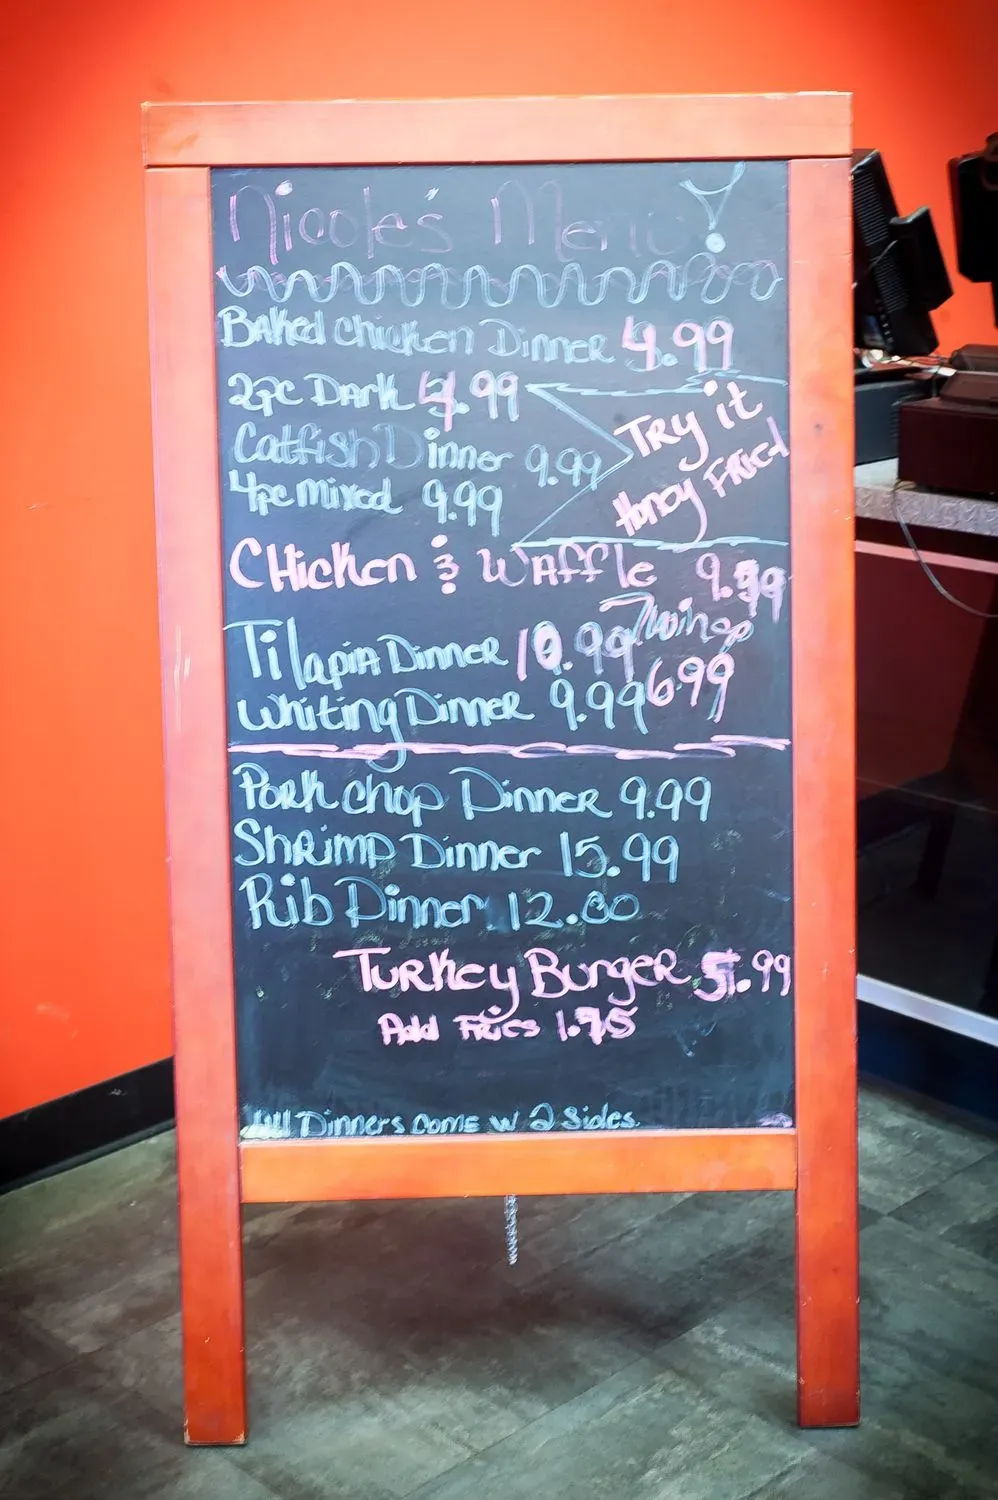 Nicole's Menu!
Baked Chicken Dinner 4.99
2pc Dark 4.99
Try it
Honey Fried
Catfish Dinner 9.99
4pc mixed 9.99
Chicken & Waffle 9.99
Tilapia Dinner 10.99
7wings
6.99
Whiting Dinner 9.99
Pork chop Dinner 9.99
Shrimp Dinner 15.99
Rib Dinner 12.00
Turkey Burger 5.99
Add Fries 1.75
All Dinners Come w 2 Sides.